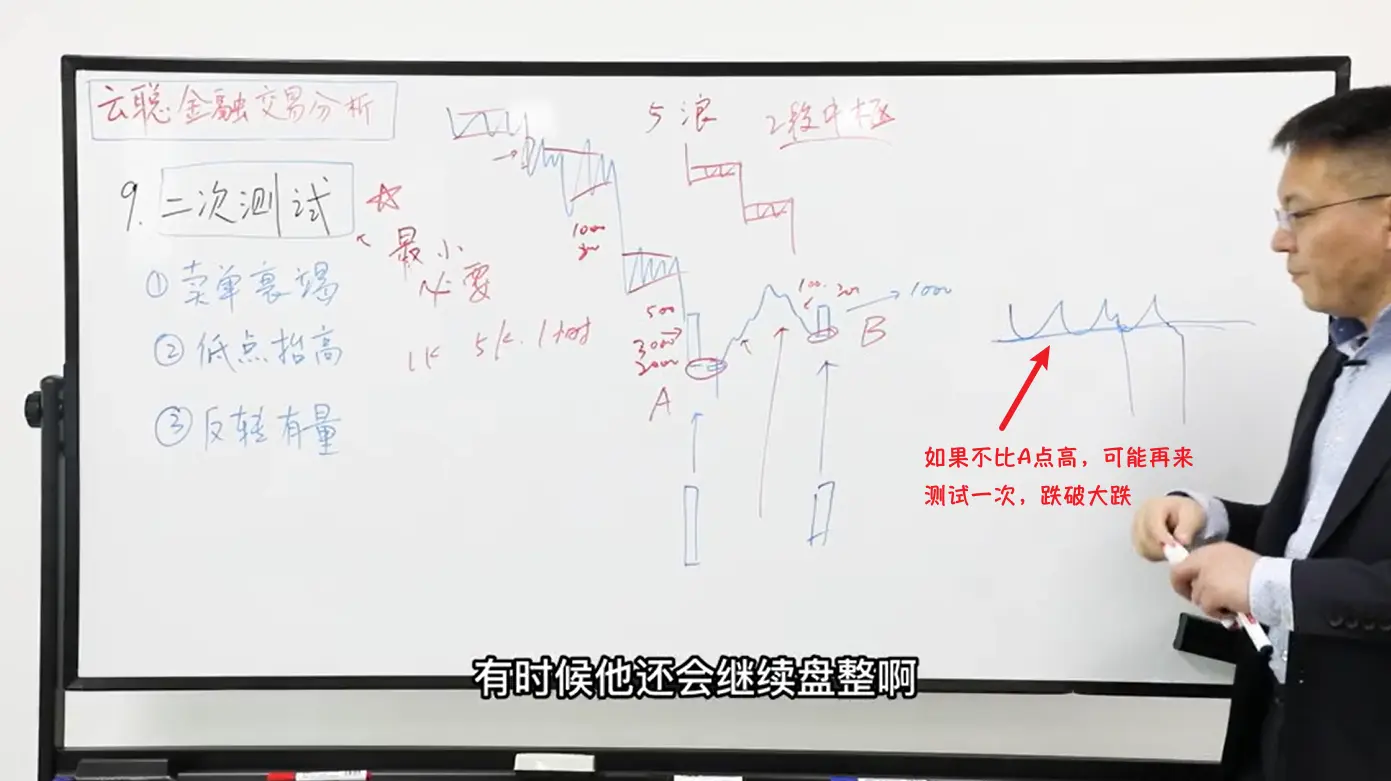 云聪金融交易分析
9. 二次测试
最小
必要
① 卖单衰竭
② 低点抬高
③ 反转有量
1K 5K. 1小时
5浪 2段中枢
1000
500
3000
2000
A
100. 200
1000
B
如果不比A点高，可能再来
测试一次，跌破大跌
有时候他还会继续盘整啊